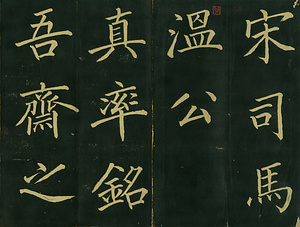 宋司馬
溫公
真率銘
吾齋之